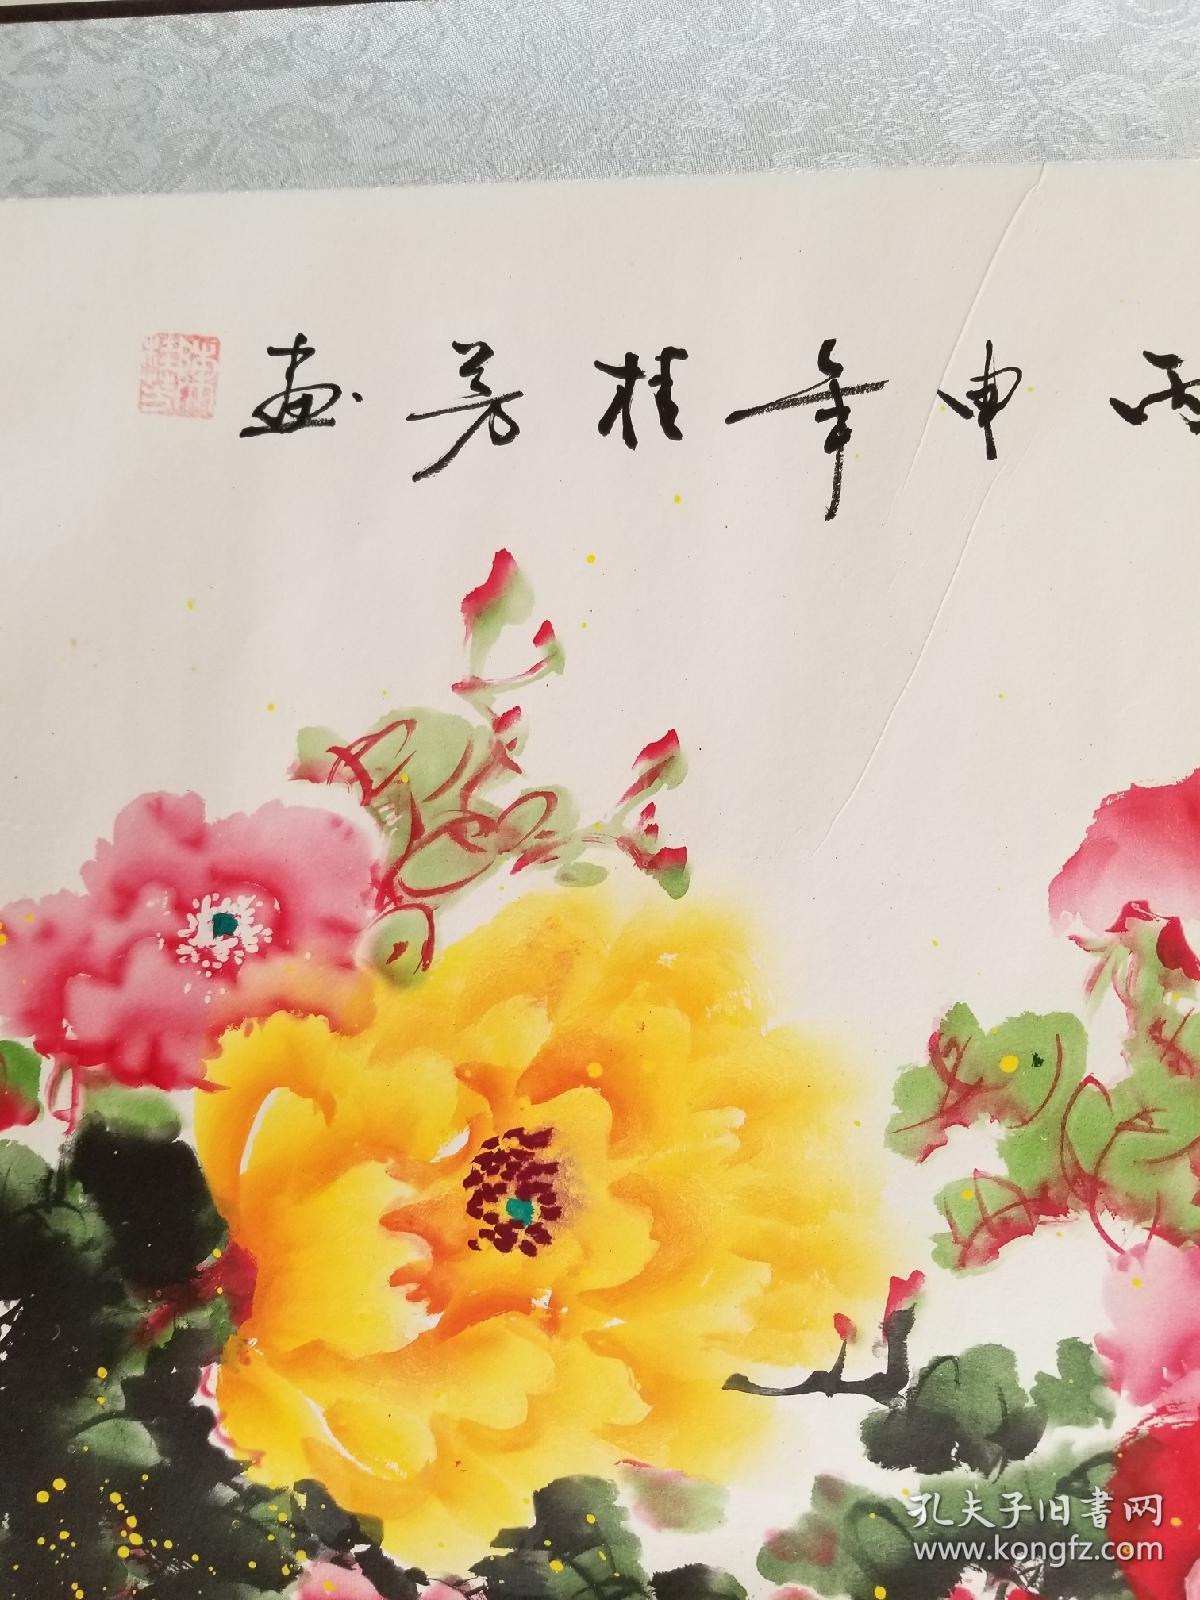 丙申年桂芳画
孔夫子旧書网
www.kongfz.com